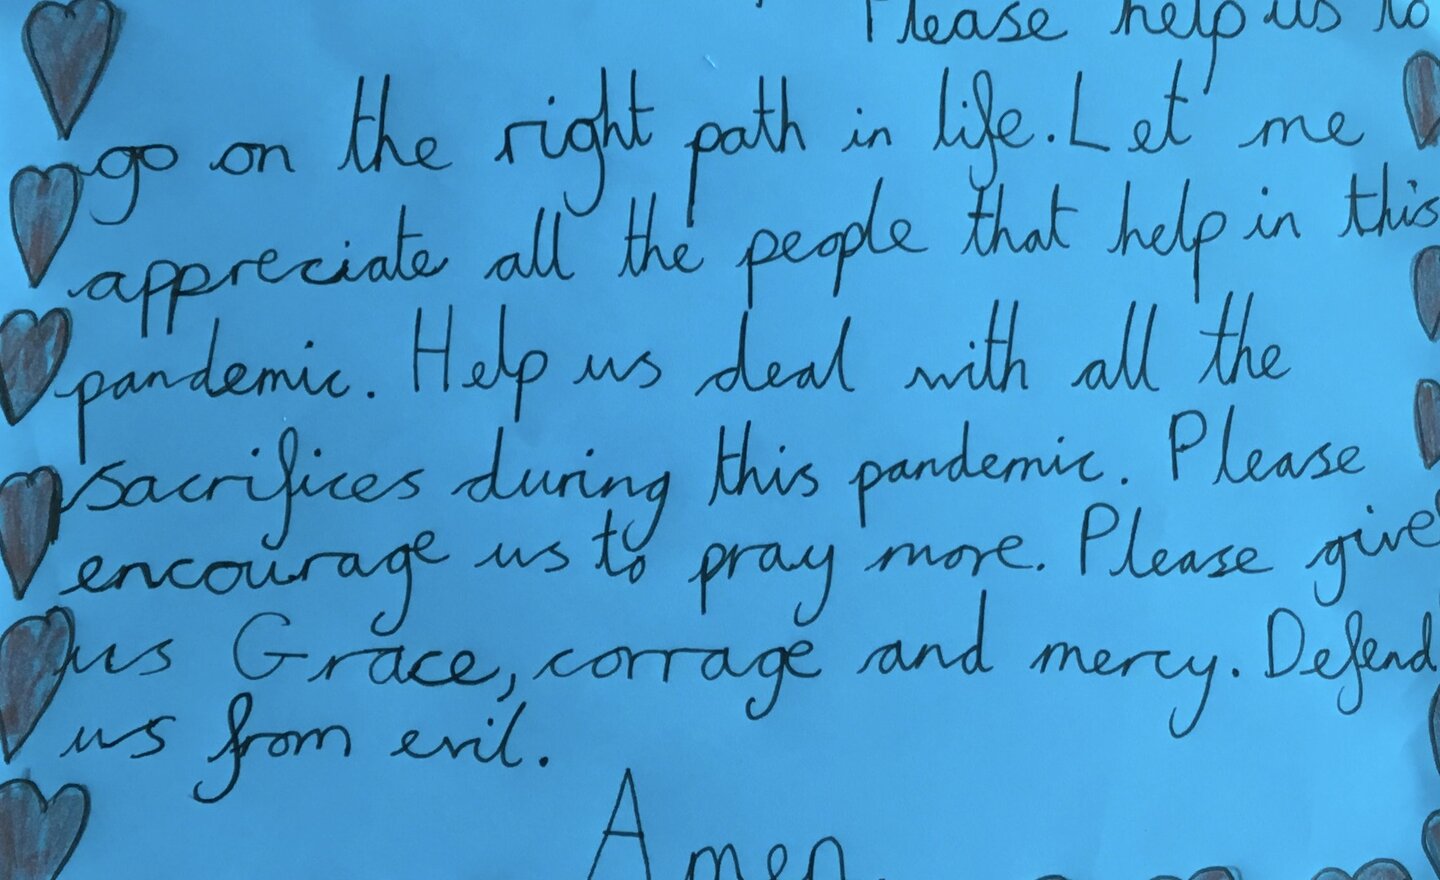 Please help us to
go on the right path in life. Let me
appreciate all the people that help in this
pandemic. Help us deal with all the
sacrifices during this pandemic. Please
encourage us to pray more. Please give
us Grace, corrage and mercy. Defend
us from evil.
Amen.